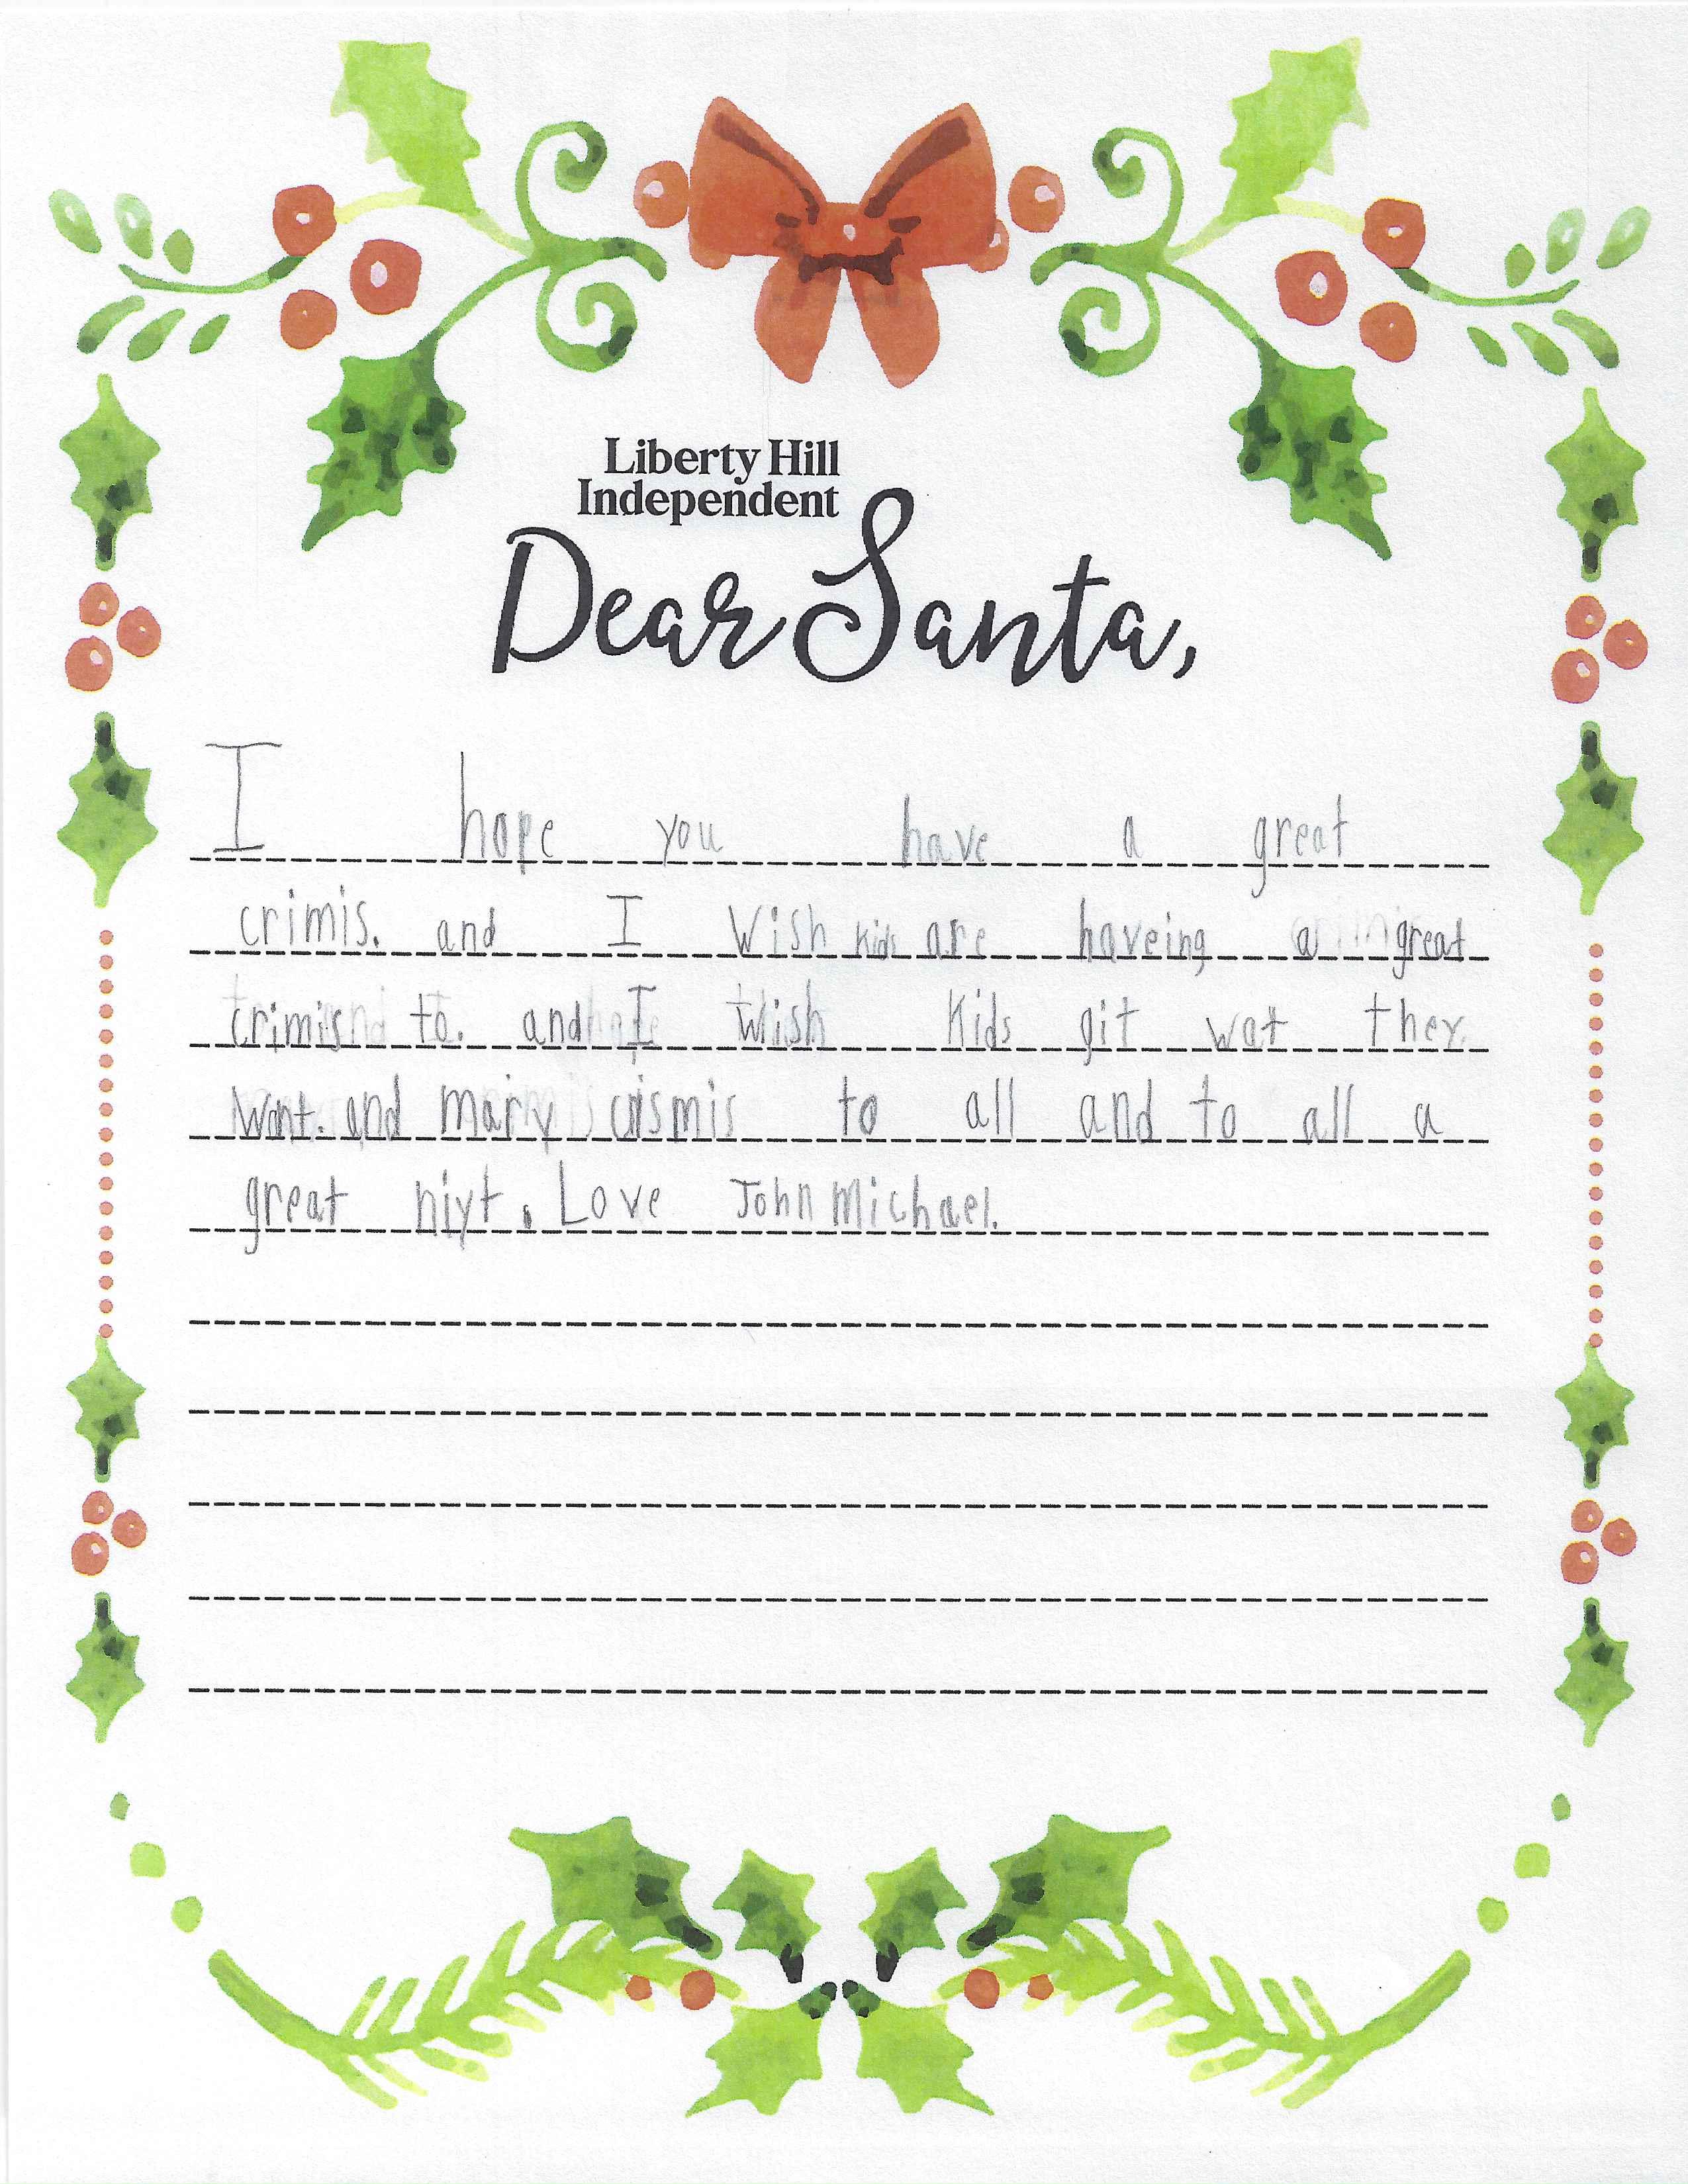 Liberty Hill
Independent
Dear Santa,
I hope you have a great
crimis. and I wish kids are haveing a great
crimis to. and I wish kids git wat they
want. and mary crismis to all and to all a
great niyt. Love John Michael.